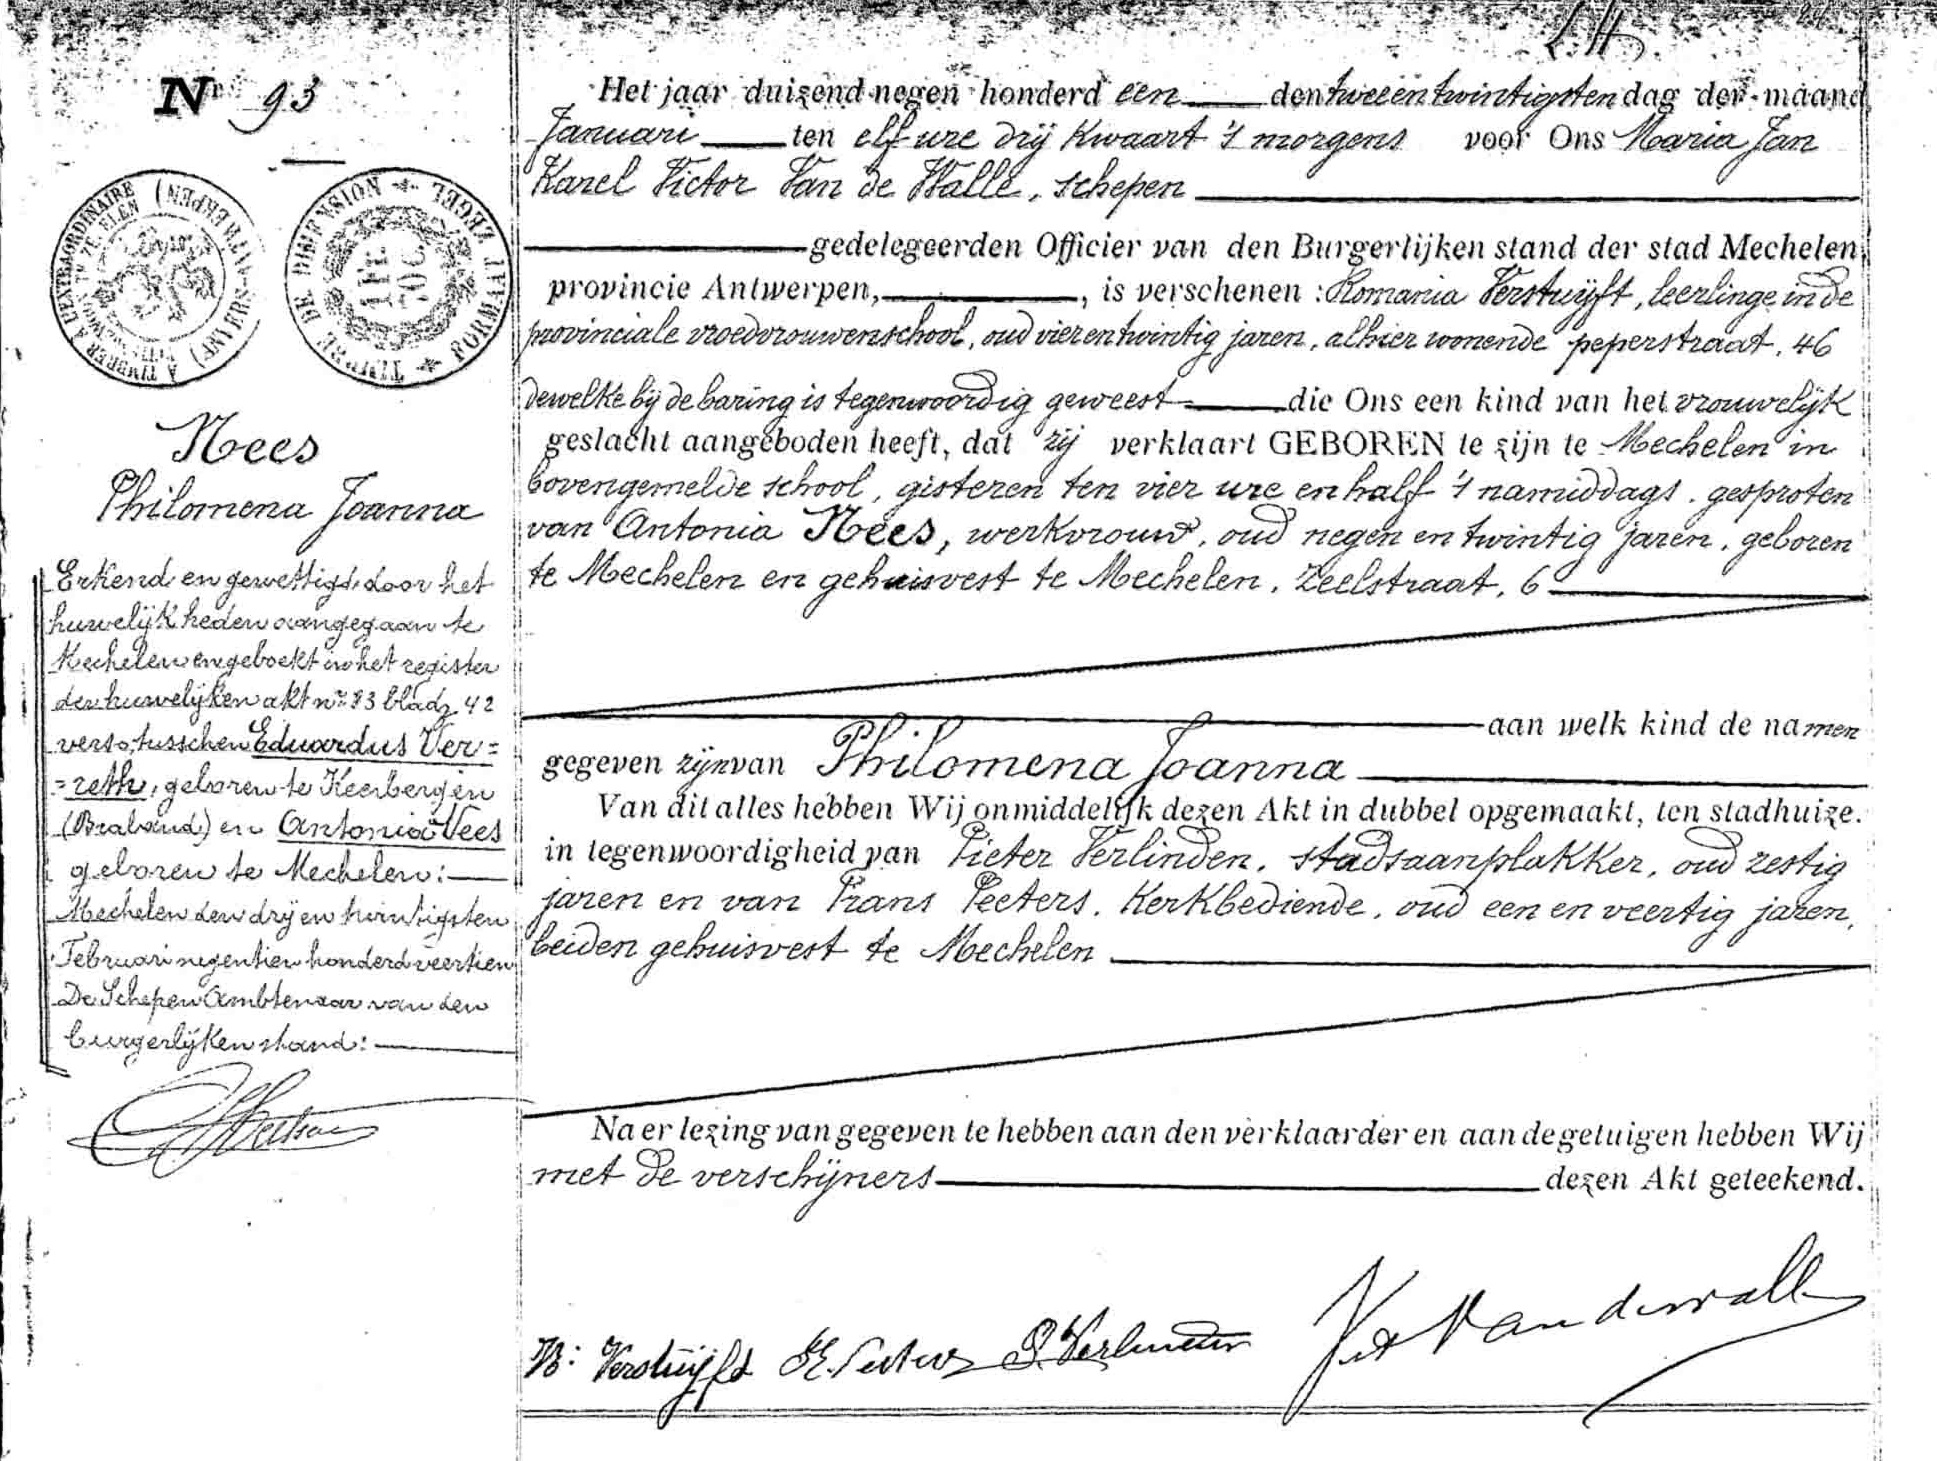 L.H.
Nr 93
TIMBRER À L'EXTRAORDINAIRE
À (ANVERS-ANTWERPEN)
TIMBRE DE DIMENSION
FORMAAT ZEGEL
1 FR
50 C
Nees
Philomena Joanna
Erkend en gewettigd door het
huwelijk heden aangegaan te
Mechelen en geboekt in het register
der huwelijken akt nr 83 bladz. 42
verso, tusschen Eduardus Ver=
=reth, geboren te Keerbergen
(Braband) en Antonia Nees
geboren te Mechelen:
Mechelen den drij en twintigsten
Februari negentien honderd veertien
De Schepen Ambtenaar van den
burgerlijken stand:
Het jaar duizend negen honderd een den tweeen twintigsten dag der maand
Januari ten elf ure drij kwaart 's morgens voor Ons Maria Jan
Karel Victor Van de Walle, schepen
gedelegeerden Officier van den Burgerlijken stand der stad Mechelen,
provincie Antwerpen, , is verschenen : Romania Verstuijft, leerlinge in de
provinciale vroedvrouwenschool, oud vierentwintig jaren, alhier wonende peperstraat, 46
dewelke bij de baring is tegenwoordig geweest die Ons een kind van het vrouwelijk
geslacht aangeboden heeft, dat zij verklaart GEBOREN te zijn te Mechelen in
bovengemelde school, gisteren ten vier ure en half 's namiddags, gesproten
van Antonia Nees, werkvrouw, oud negen en twintig jaren, geboren
te Mechelen en gehuisvest te Mechelen, Zeelstraat, 6
aan welk kind de namen
gegeven zijn van Philomena Joanna
Van dit alles hebben Wij onmiddelijk dezen Akt in dubbel opgemaakt, ten stadhuize.
in tegenwoordigheid van Pieter Verlinden, stadsaanplakker, oud zestig
jaren en van Frans Peeters, Kerkbediende, oud een en veertig jaren,
beiden gehuisvest te Mechelen
Na er lezing van gegeven te hebben aan den verklaarder en aan de getuigen hebben Wij
met de verschijners dezen Akt geteekend.
R: Verstuijft Fr. Peeters P. Verlinden Vandewalle